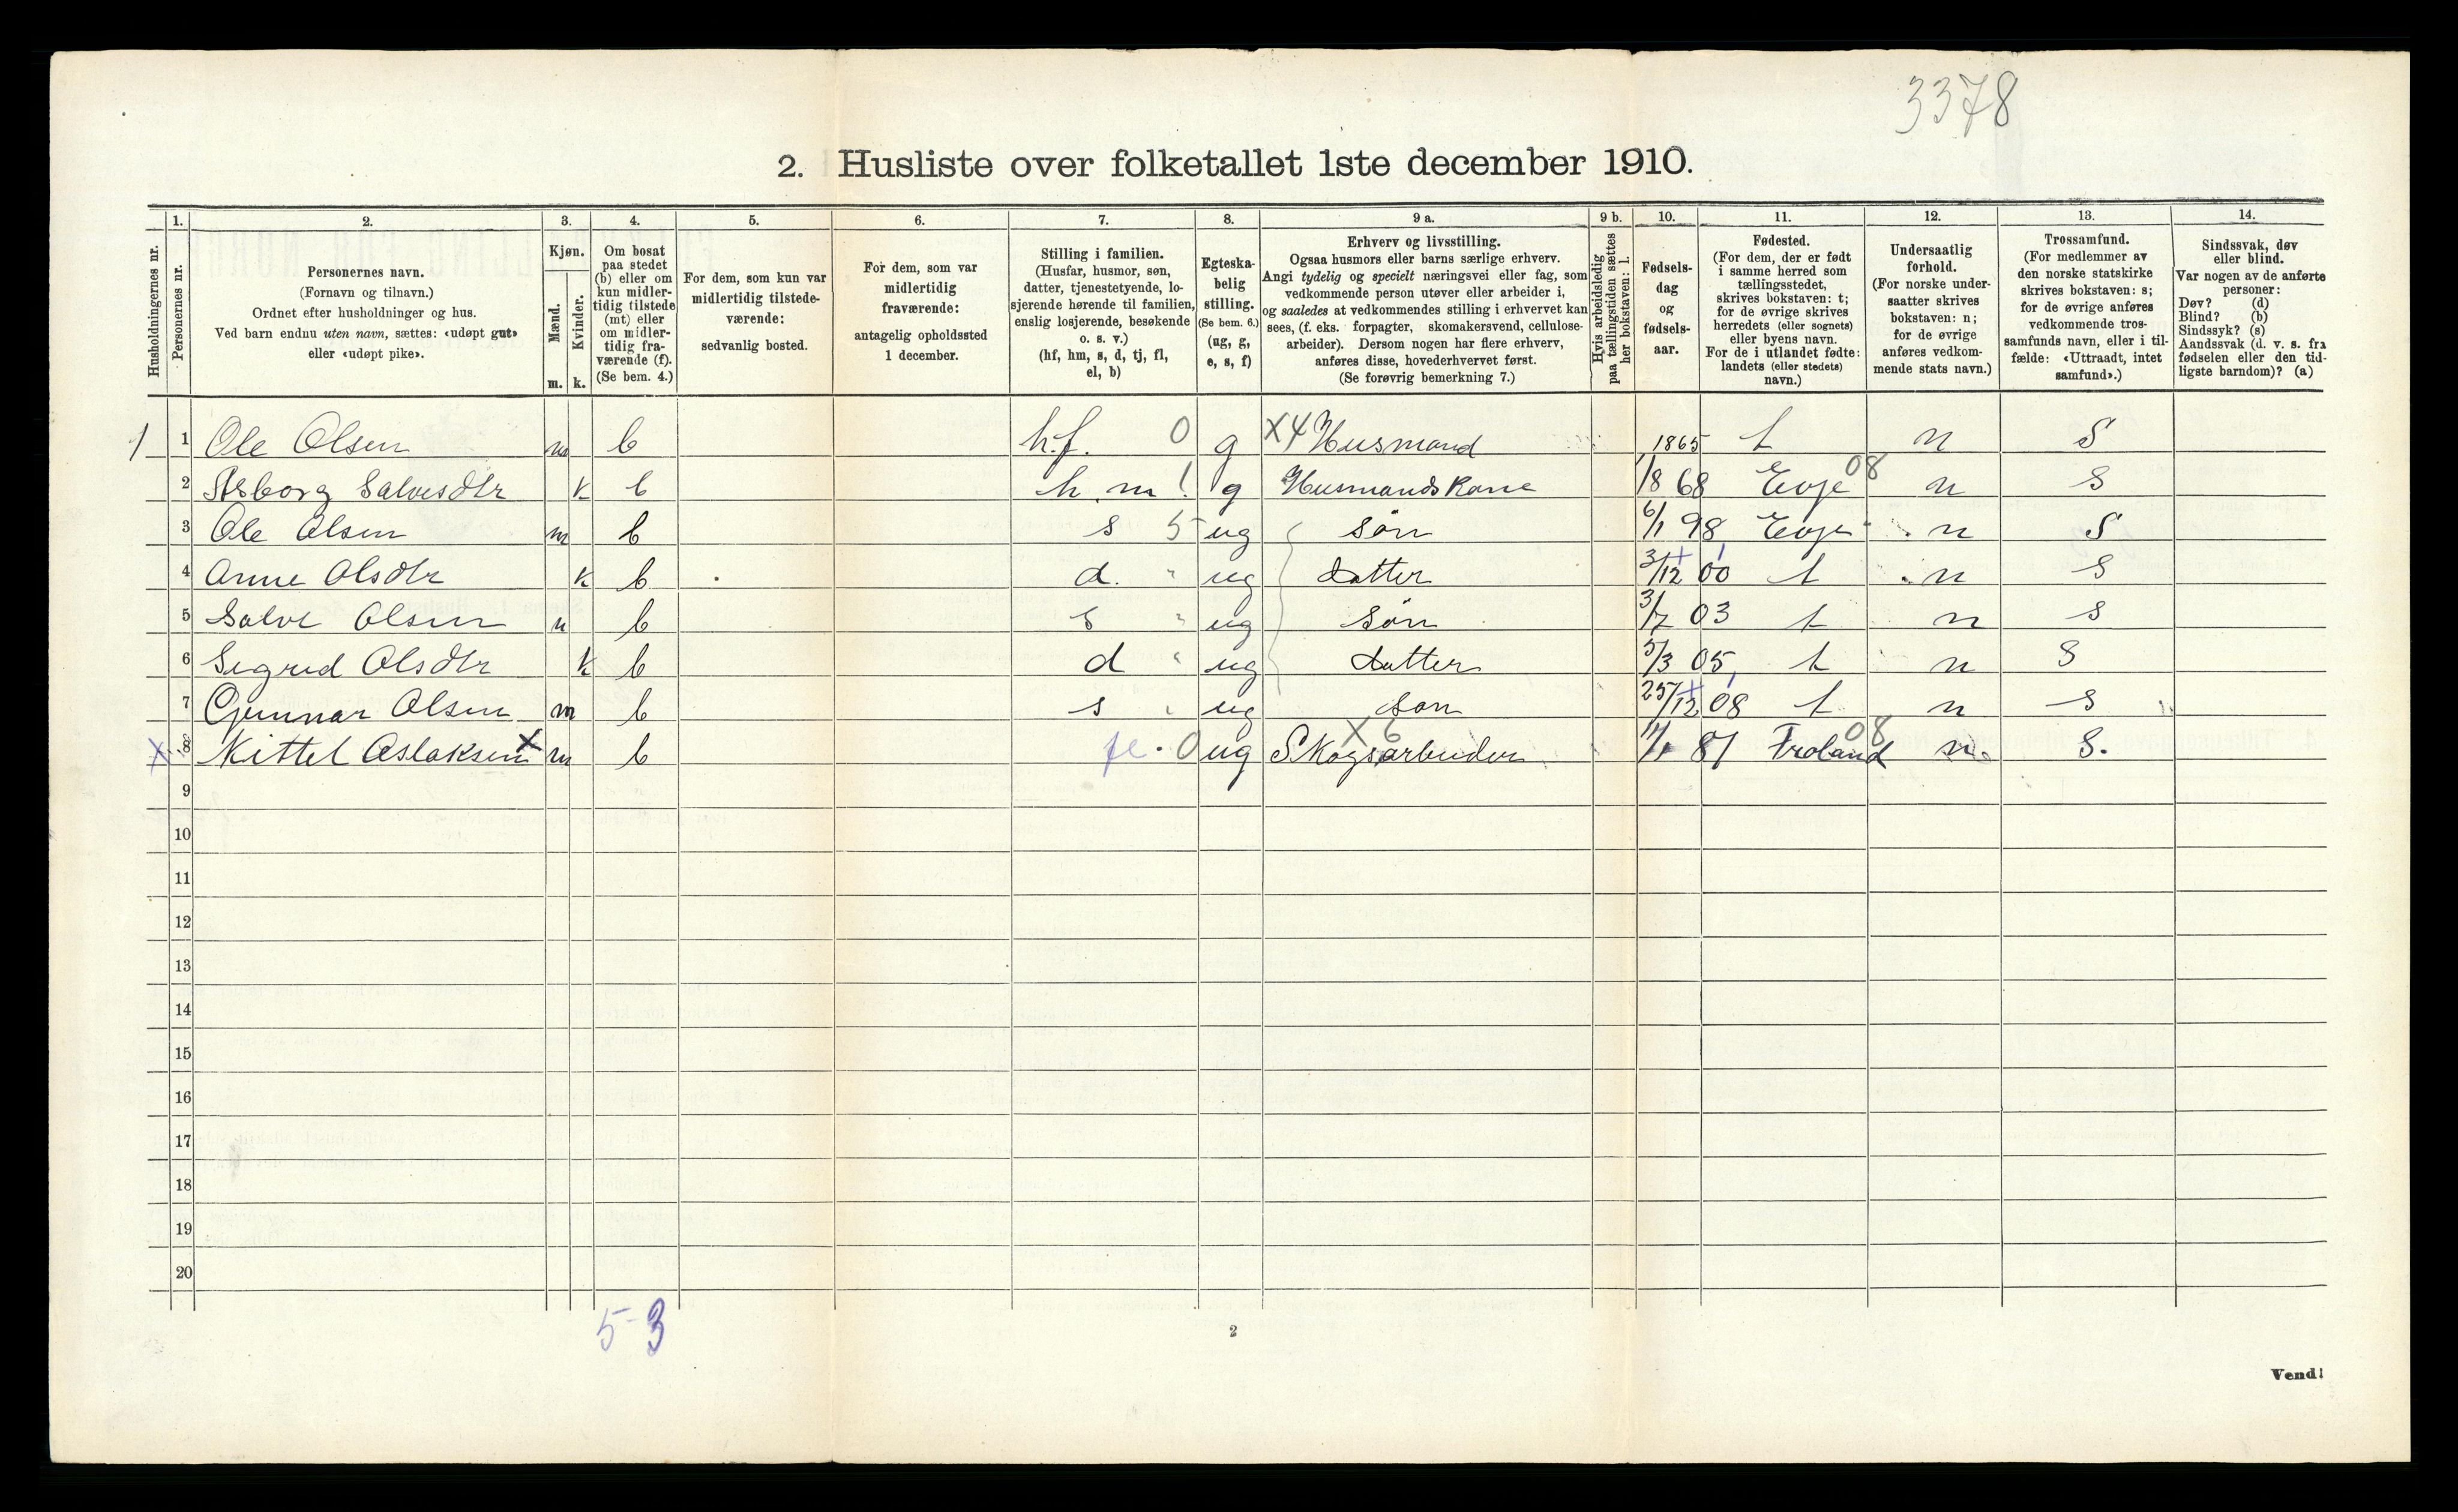 3378
2. Husliste over folketallet 1ste december 1910.
Husholdningernes nr.
1.
Personernes nr.
2.
Personernes navn.
(Fornavn og tilnavn.)
Ordnet efter husholdninger og hus.
Ved barn endnu uten navn, sættes: «udøpt gut»
eller «udøpt pike».
3.
Kjøn.
Mænd.
Kvinder.
m. k.
4.
Om bosat
paa stedet
(b) eller om
kun midler-
tidig tilstede
(mt) eller
om midler-
tidig fra-
værende (f).
(Se bem. 4.)
5.
For dem, som kun var
midlertidig tilstede-
værende:
sedvanlig bosted.
6.
For dem, som var
midlertidig
fraværende:
antagelig opholdssted
1 december.
7.
Stilling i familien.
(Husfar, husmor, søn,
datter, tjenestetyende, lo-
sjerende hørende til familien,
enslig losjerende, besøkende
o. s. v.)
(hf, hm, s, d, tj, fl,
el, b)
8.
Egteska-
belig
stilling.
(Se bem. 6.)
(ug, g,
e, s, f)
9 a.
Erhverv og livsstilling.
Ogsaa husmors eller barns særlige erhverv.
Angi tydelig og specielt næringsvei eller fag, som
vedkommende person utøver eller arbeider i,
og saaledes at vedkommendes stilling i erhvervet kan
sees, (f. eks. forpagter, skomakersvend, cellulose-
arbeider). Dersom nogen har flere erhverv,
anføres disse, hovederhvervet først.
(Se forøvrig bemerkning 7.)
9 b.
Hvis arbeidsledig
paa tællingstiden sættes
her bokstaven: l.
10.
Fødsels-
dag
og
fødsels-
aar.
11.
Fødested.
(For dem, der er født
i samme herred som
tællingsstedet,
skrives bokstaven: t;
for de øvrige skrives
herredets (eller sognets)
eller byens navn.
For de i utlandet fødte:
landets (eller stedets)
navn.)
12.
Undersaatlig
forhold.
(For norske under-
saatter skrives
bokstaven: n;
for de øvrige
anføres vedkom-
mende stats navn.)
13.
Trossamfund.
(For medlemmer av
den norske statskirke
skrives bokstaven: s;
for de øvrige anføres
vedkommende tros-
samfunds navn, eller i til-
fælde: «Uttraadt, intet
samfund».)
14.
Sindssvak, døv
eller blind.
Var nogen av de anførte
personer:
Døv? (d)
Blind? (b)
Sindssyk? (s)
Aandssvak (d. v. s. fra
fødselen eller den tid-
ligste barndom)? (a)
1 1 Ole Olsen m b h.f. 0 g X4 Husmand 1865 t n S
2 Asborg Salvesdtr k b h.m. g Husmandskone 1868 Evje 08 n S
3 Ole Olsen m b s 5 ug søn 6/1 98 Evje n S
4 Anne Olsdtr k b d. " ug datter 3/12 00 t n S
5 Salve Olsen m b s " ug søn 3/7 03 t n s
6 Sigrid Olsdtr k b d " ug datter 5/3 05 t n S
7 Gunnar Olsen m b s " ug søn 25/12 08 t n s
X 8 Kittel Aslaksen X m b fl 0 ug X6 Skogsarbeider 87 Froland 08 n S.
9
10
11
12
13
14
15
16
17
18
19
20
5-3
2
Vend!